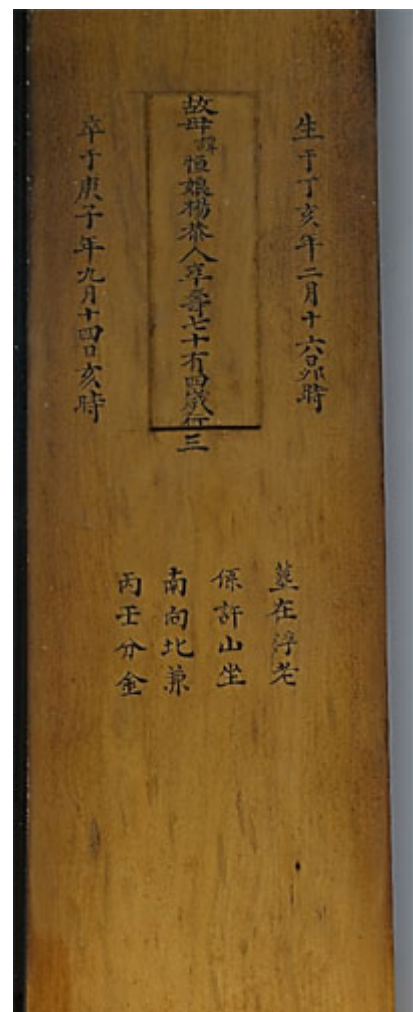 生于丁亥年二月十六日卯時
故母諱恒娘楊恭人卒壽七十有四歲行三
卒于庚子年九月十四日亥時
葬在浮老
係許山坐
南向北兼
丙壬分金